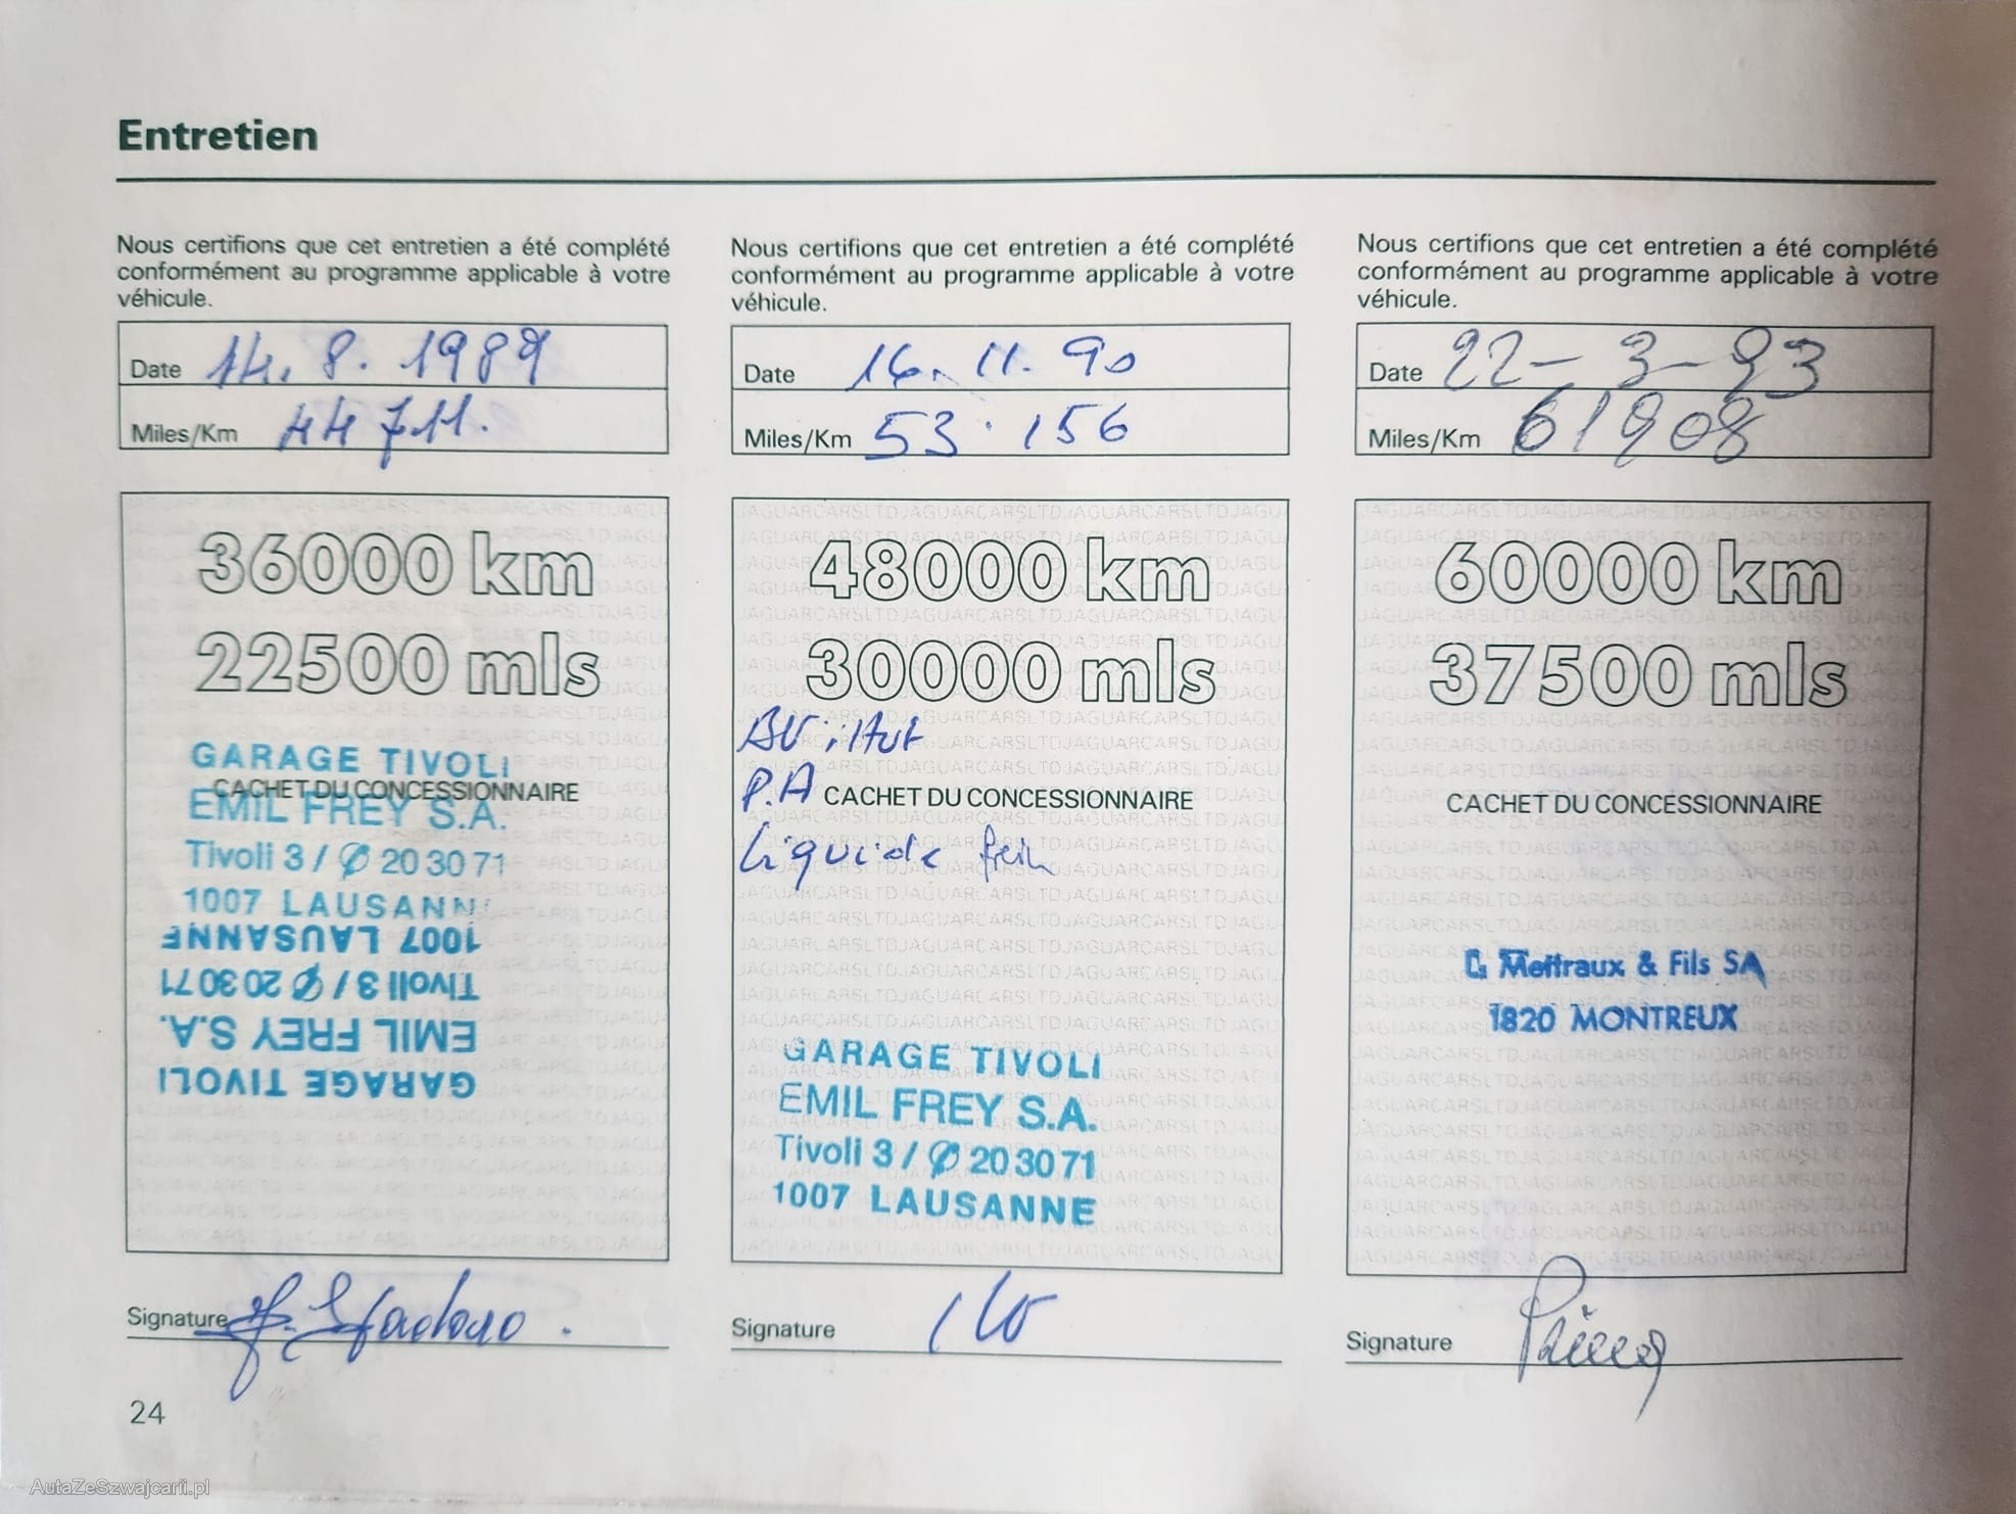 Entretien
Nous certifions que cet entretien a été complété
conformément au programme applicable à votre
véhicule.
Date 14. 8. 1989
Miles/Km 44 711.
36000 km
22500 mls
GARAGE TIVOLI
CACHET DU CONCESSIONNAIRE
EMIL FREY S.A.
Tivoli 3 / 20 30 71
1007 LAUSANN
1007 LAUSANNE
Tivoli 3 / 20 30 71
EMIL FREY S.A.
GARAGE TIVOLI
Signature
24
Nous certifions que cet entretien a été complété
conformément au programme applicable à votre
véhicule.
Date 16. 11. 90
Miles/Km 53 · 156
48000 km
30000 mls
P.A
CACHET DU CONCESSIONNAIRE
Liquide frein
GARAGE TIVOLI
EMIL FREY S.A.
Tivoli 3 / 20 30 71
1007 LAUSANNE
Signature
Nous certifions que cet entretien a été complété
conformément au programme applicable à votre
véhicule.
Date 22-3-93
Miles/Km 61908
60000 km
37500 mls
CACHET DU CONCESSIONNAIRE
Mettraux & Fils SA
1820 MONTREUX
Signature
AutaZeSzwajcarii.pl